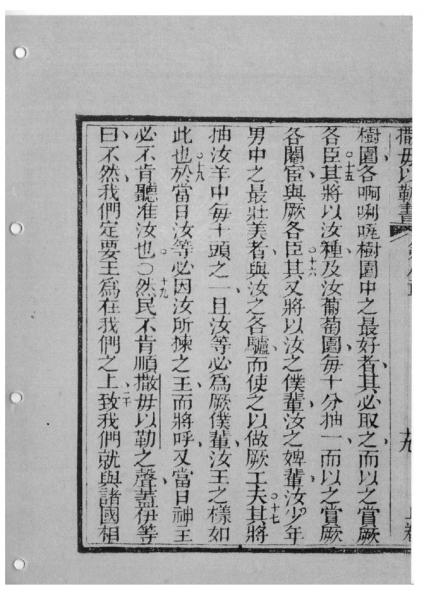 撒毋以勒書
樹園各啊唎𠲖樹園中之最好者其必取之而以之賞厥
各臣○十五其將以汝種及汝葡萄園每十分抽一而以之賞厥
各閹臣與厥各臣○十六其又將以汝之僕輩汝之婢輩汝少年
男中之最壯美者與汝之各驢而使之以做厥工夫○十七其將
抽汝羊中每十頭之一且汝等必為厥僕輩汝王之樣如
此也○十八於當日汝等必因汝所揀之王而將呼又當日神主
必不肯聽准汝也○十九○然民不肯順撒毋以勒之聲蓋伊等
曰不然我們定要王為在我們之上二十致我們就與諸國相